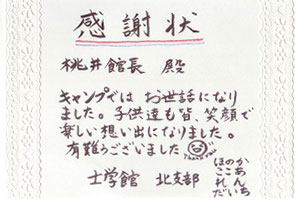 感謝状
桃井館長 殿
キャンプでは お世話になり
ました。子供達も皆、笑顔で
楽しい想い出になりました。
有難うございました
Thank You
士学館 北支部
ほのか
ここあ
れん
だいち